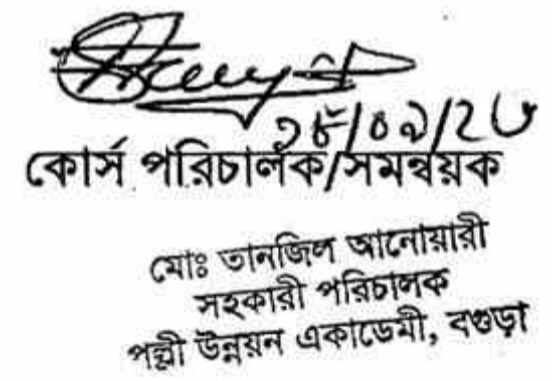 কোর্স পরিচালক/সমন্বয়ক
মোঃ তানজিল আনোয়ারী
সহকারী পরিচালক
পল্লী উন্নয়ন একাডেমী, বগুড়া